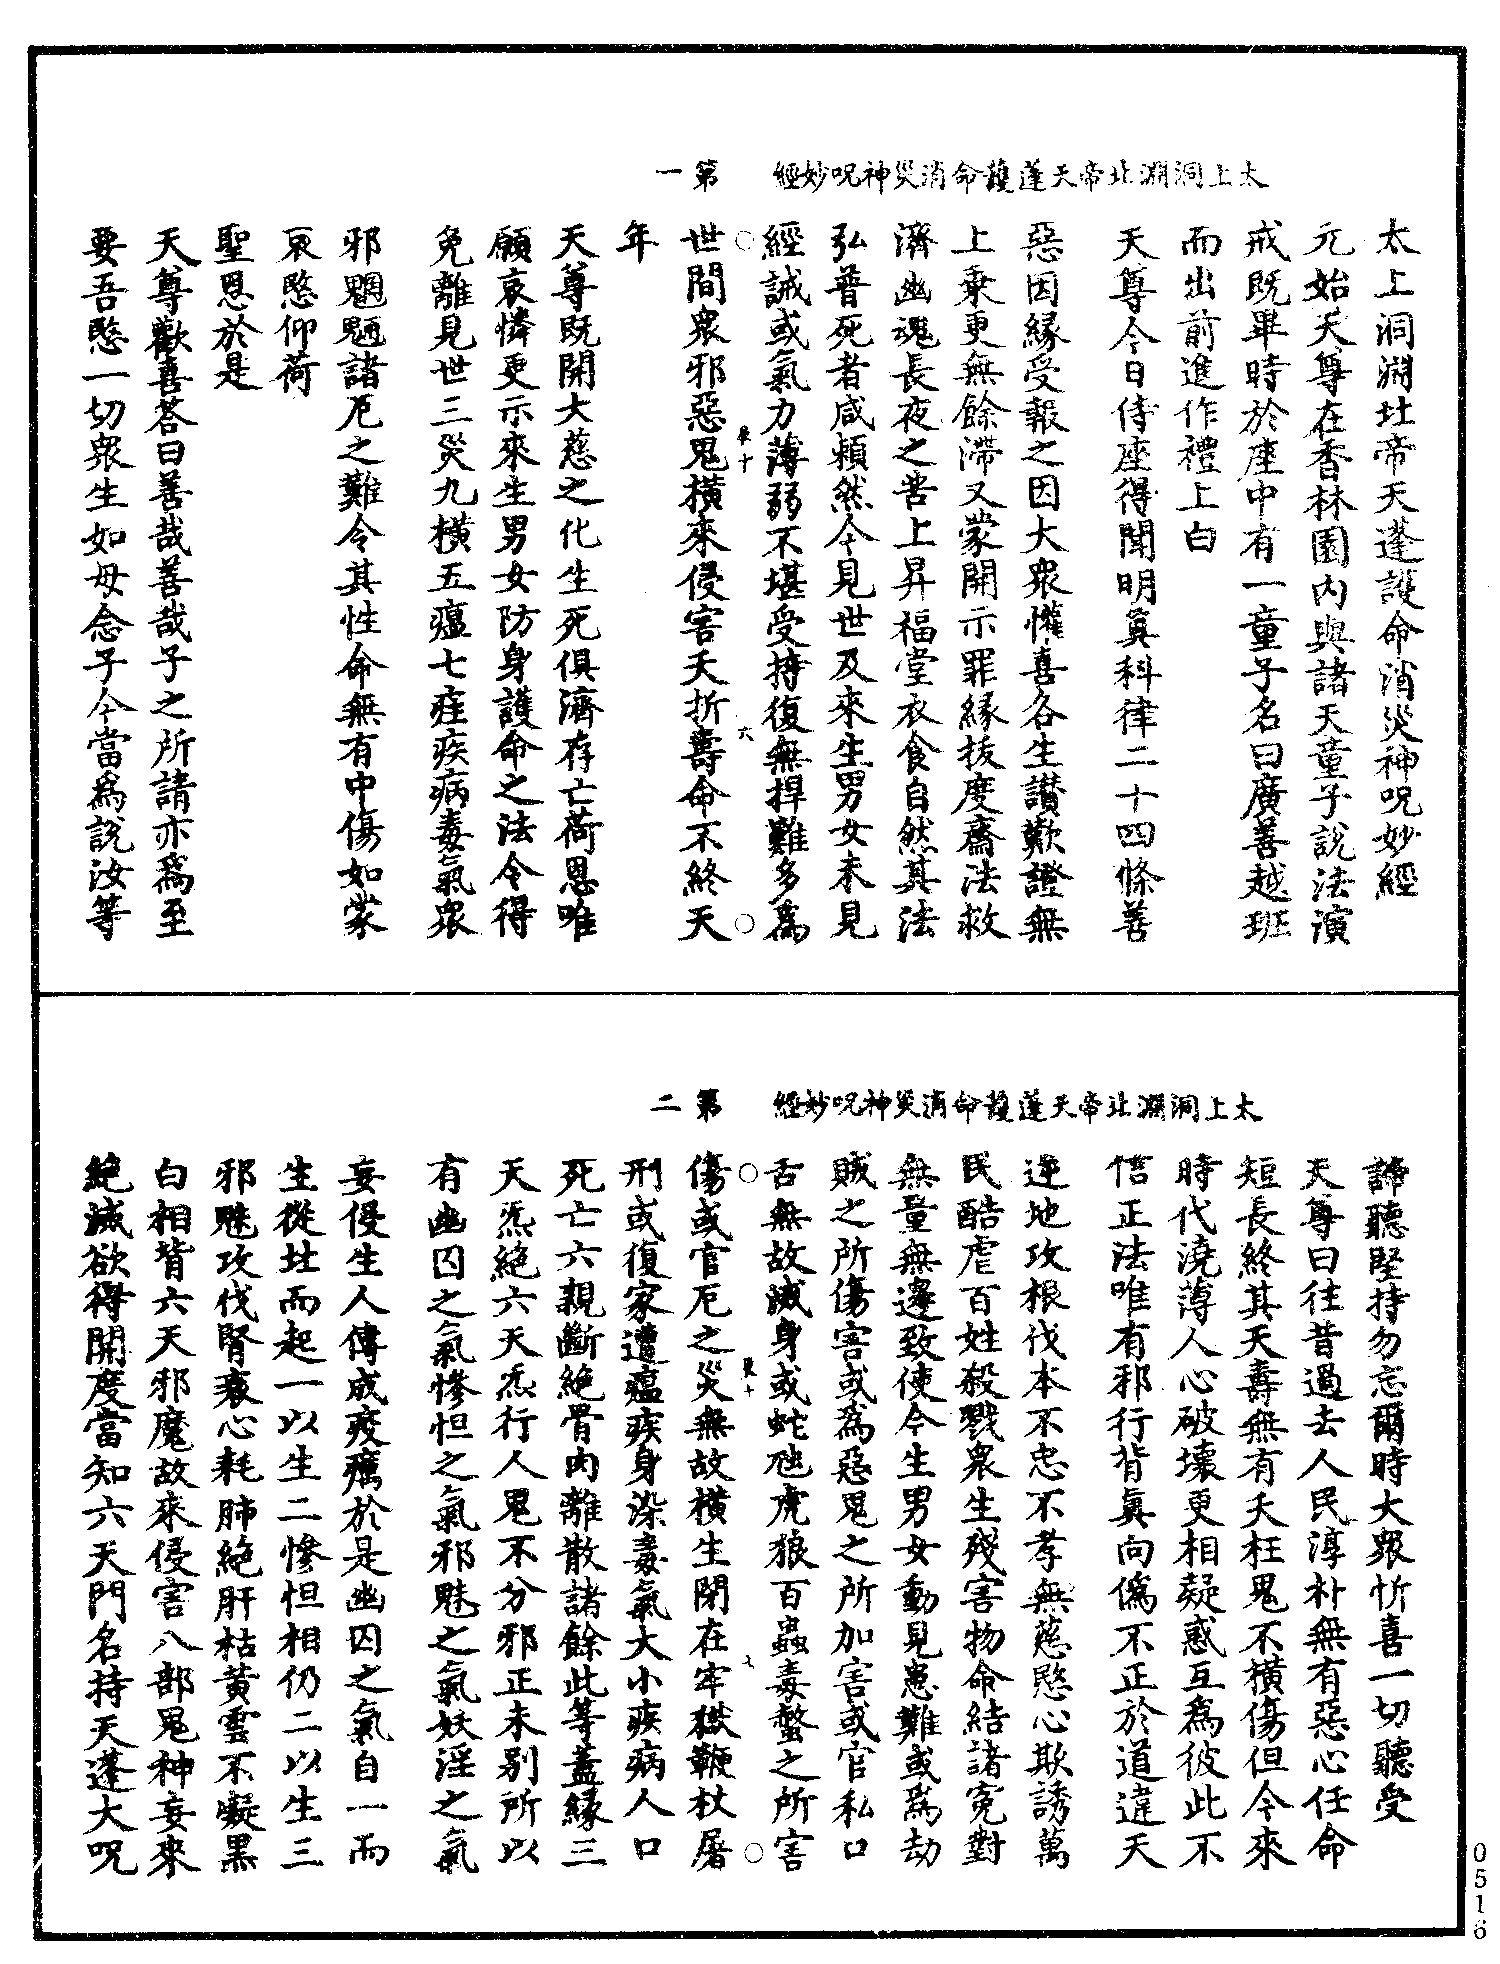 太上洞淵北帝天蓬護命消災神呪妙經　第一
太上洞淵北帝天蓬護命消災神呪妙經
元始天尊在香林園內與諸天童子說法演
戒既畢時於座中有一童子名曰廣善越班
而出前進作禮上白
天尊今日侍座得聞明真科律二十四條善
惡因緣受報之因大眾懽喜各生讚歎證無
上乘更無餘滯又蒙開示罪緣拔度齋法救
濟幽魂長夜之苦上昇福堂衣食自然其法
弘普死者咸賴然今見世及來生男女未見
經誡或氣力薄弱不堪受持復無捍難多為
世間眾邪惡鬼橫來侵害夭折壽命不終天
年
天尊既開大慈之化生死俱濟存亡荷恩唯
願哀憐更示來生男女防身護命之法令得
免離見世三災九橫五瘟七疰疾病毒氣眾
邪魍魎諸厄之難令其性命無有中傷如蒙
哀愍仰荷
聖恩於是
天尊歡喜答曰善哉善哉子之所請亦為至
要吾愍一切眾生如母念子今當為說汝等
太上洞淵北帝天蓬護命消災神呪妙經　第二
諦聽堅持勿忘爾時大眾忻喜一切聽受
天尊曰往昔過去人民淳朴無有惡心任命
短長終其天壽無有夭枉鬼不橫傷但今來
時代澆薄人心破壞更相疑惑互為彼此不
信正法唯有邪行背真向偽不正於道違天
逆地攻根伐本不忠不孝無慈愍心欺誘萬
民酷虐百姓殺戮眾生殘害物命結諸冤對
無量無邊致使今生男女動見患難或為劫
賊之所傷害或為惡鬼之所加害或官私口
舌無故滅身或蛇虺虎狼百蟲毒螫之所害
傷或官厄之災無故橫生閉在牢獄鞭杖屠
刑或復家遭瘟疾身染毒氣大小疾病人口
死亡六親斷絕骨肉離散諸餘此等蓋緣三
天炁絕六天炁行人鬼不分邪正未別所以
有幽囚之氣慘怛之氣邪魅之氣妖淫之氣
妄侵生人傳成疫癘於是幽囚之氣自一而
生從北而起一以生二慘怛相仍二以生三
邪魅攻伐腎衰心耗肺絕肝枯黃雲不凝黑
白相背六天邪魔故來侵害八部鬼神妄來
絕滅欲得開度當知六天門名持天蓬大呪
0516